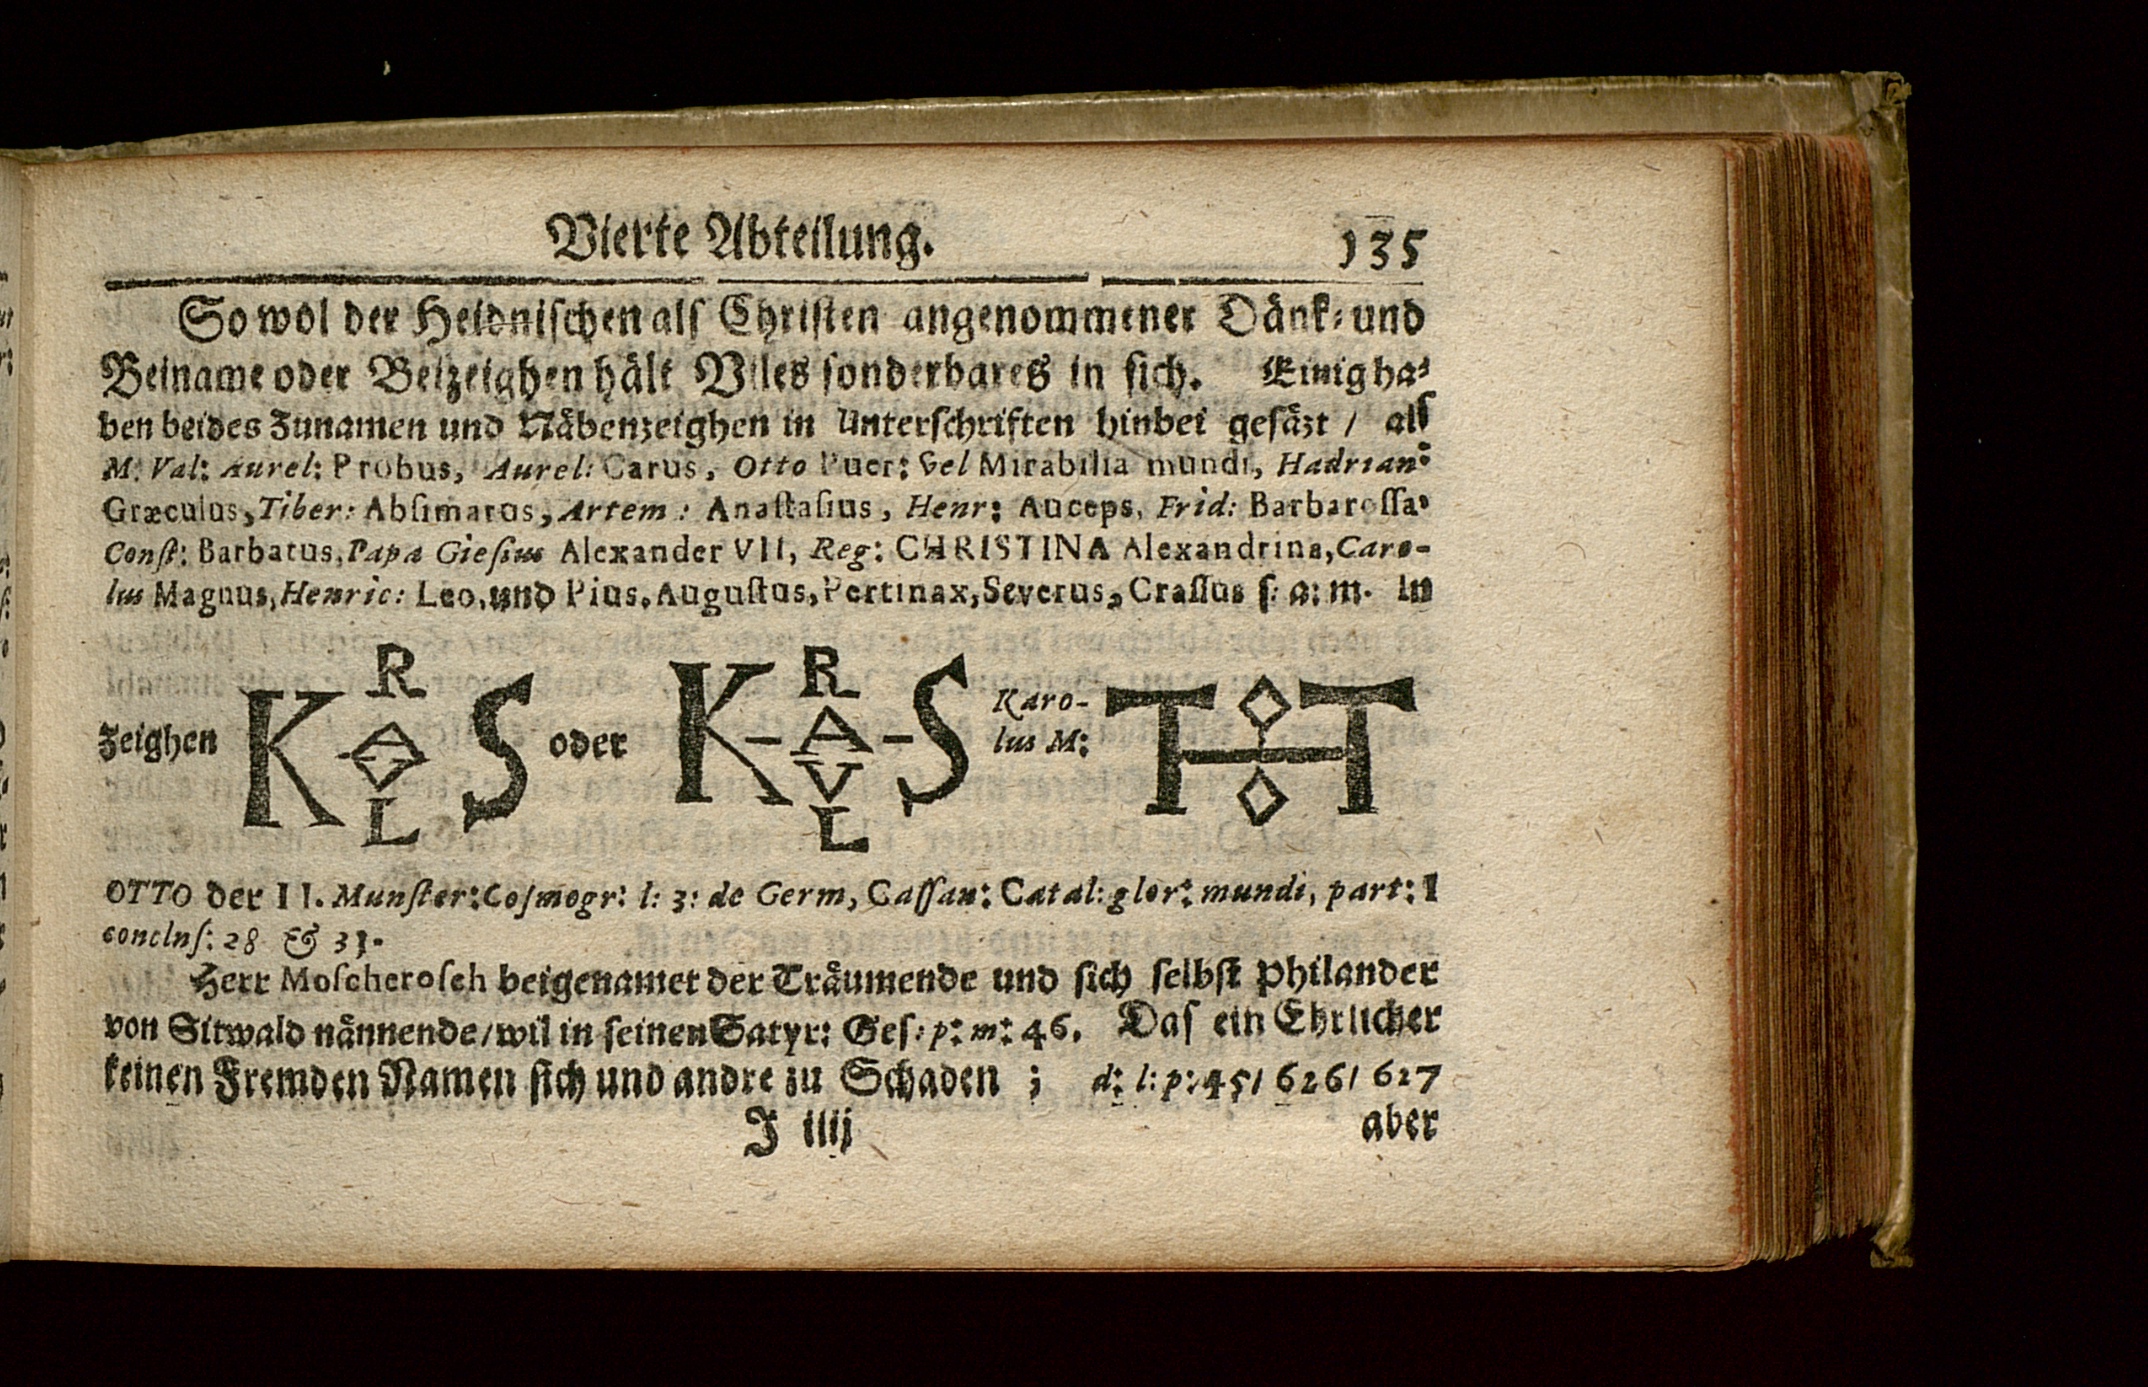 Vierte Abteilung. 135
So wol der Heidnischen alſ Chriſten angenommener Dänk⸗ und
Beiname oder Beizeighen hält Viles ſonderbares in ſich. Einig ha⸗
ben beides Zunamen und Näbenzeighen in Unterſchriften hinbei geſäzt / alſ
M: Val: Aurel: Probus, Aurel: Carus, Otto Puer: vel Mirabilia mundi, Hadrian:
Græculus, Tiber: Abſimarus, Artem: Anaſtaſius, Henr: Auceps, Frid: Barbaroſſa,
Conſt: Barbatus, Papa Gieſius Alexander VII, Reg: CHRISTINA Alexandrina, Caro-
lus Magnus, Henric: Leo, und Pius, Auguſtus, Pertinax, Severus, Craſſus ſ: a: m. In
R R
zeighen K A S oder K-A-S Karo- TOT
V V lus M:
L L
OTTO der II. Munſter: Coſmogr: l: 3: de Germ, Caſſan: Catal: glor: mundi, part: I
concluſ: 28 & 31.
Herr Moſcheroſch beigenamet der Träumende und ſich ſelbſt Philander
von Sitwald nännende / wil in ſeinen Satyr: Geſ: p: m: 46. Daſ ein Ehrlicher
keinen Fremden Namen ſich und andre zu Schaden ; d: l: p: 45 / 626 / 627
J iiij aber